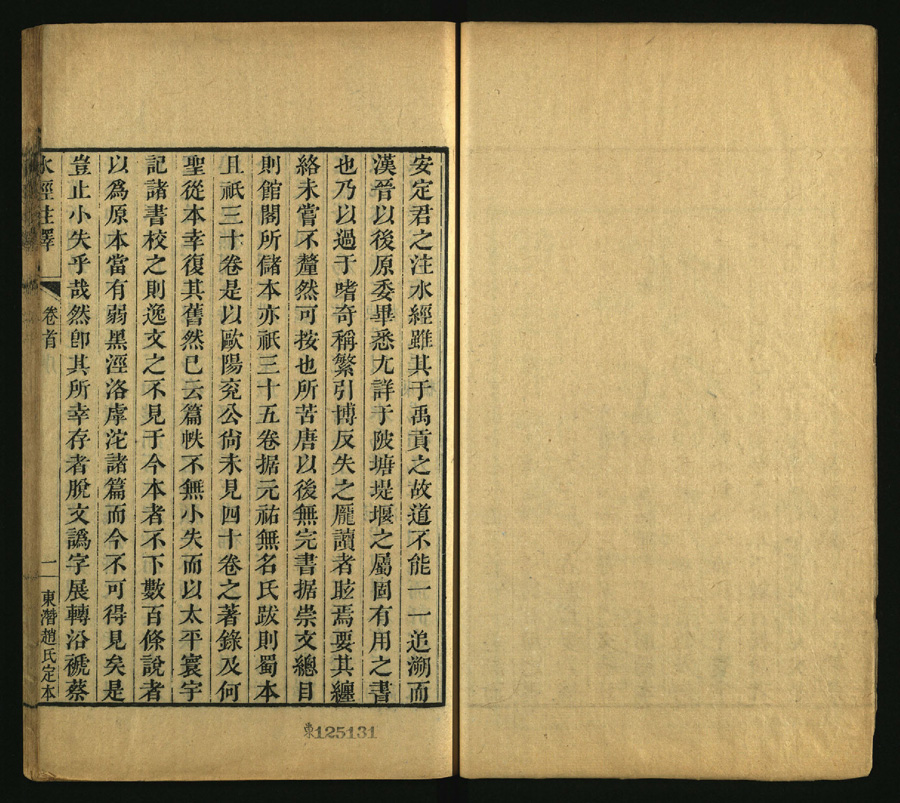 安定君之注水經雖其于禹貢之故道不能一一追溯而
漢晉以後原委畢悉尤詳于陂塘堤堰之屬固有用之書
也乃以過于嗜奇稱繁引博反失之龐讀者眩焉要其纏
絡未嘗不釐然可按也所苦唐以後無完書据崇文總目
則館閣所儲本亦祇三十五卷据元祐無名氏跋則蜀本
且祇三十卷是以歐陽兖公尙未見四十卷之著錄及何
聖從本幸復其舊然已云篇帙不無小失而以太平寰宇
記諸書校之則逸文之不見于今本者不下數百條說者
以爲原本當有弱黑涇洛虖沱諸篇而今不可得見矣是
豈止小失乎哉然卽其所幸存者脫文譌字展轉沿褫蔡
水經注釋
卷首
一
東潛趙氏定本
東125131